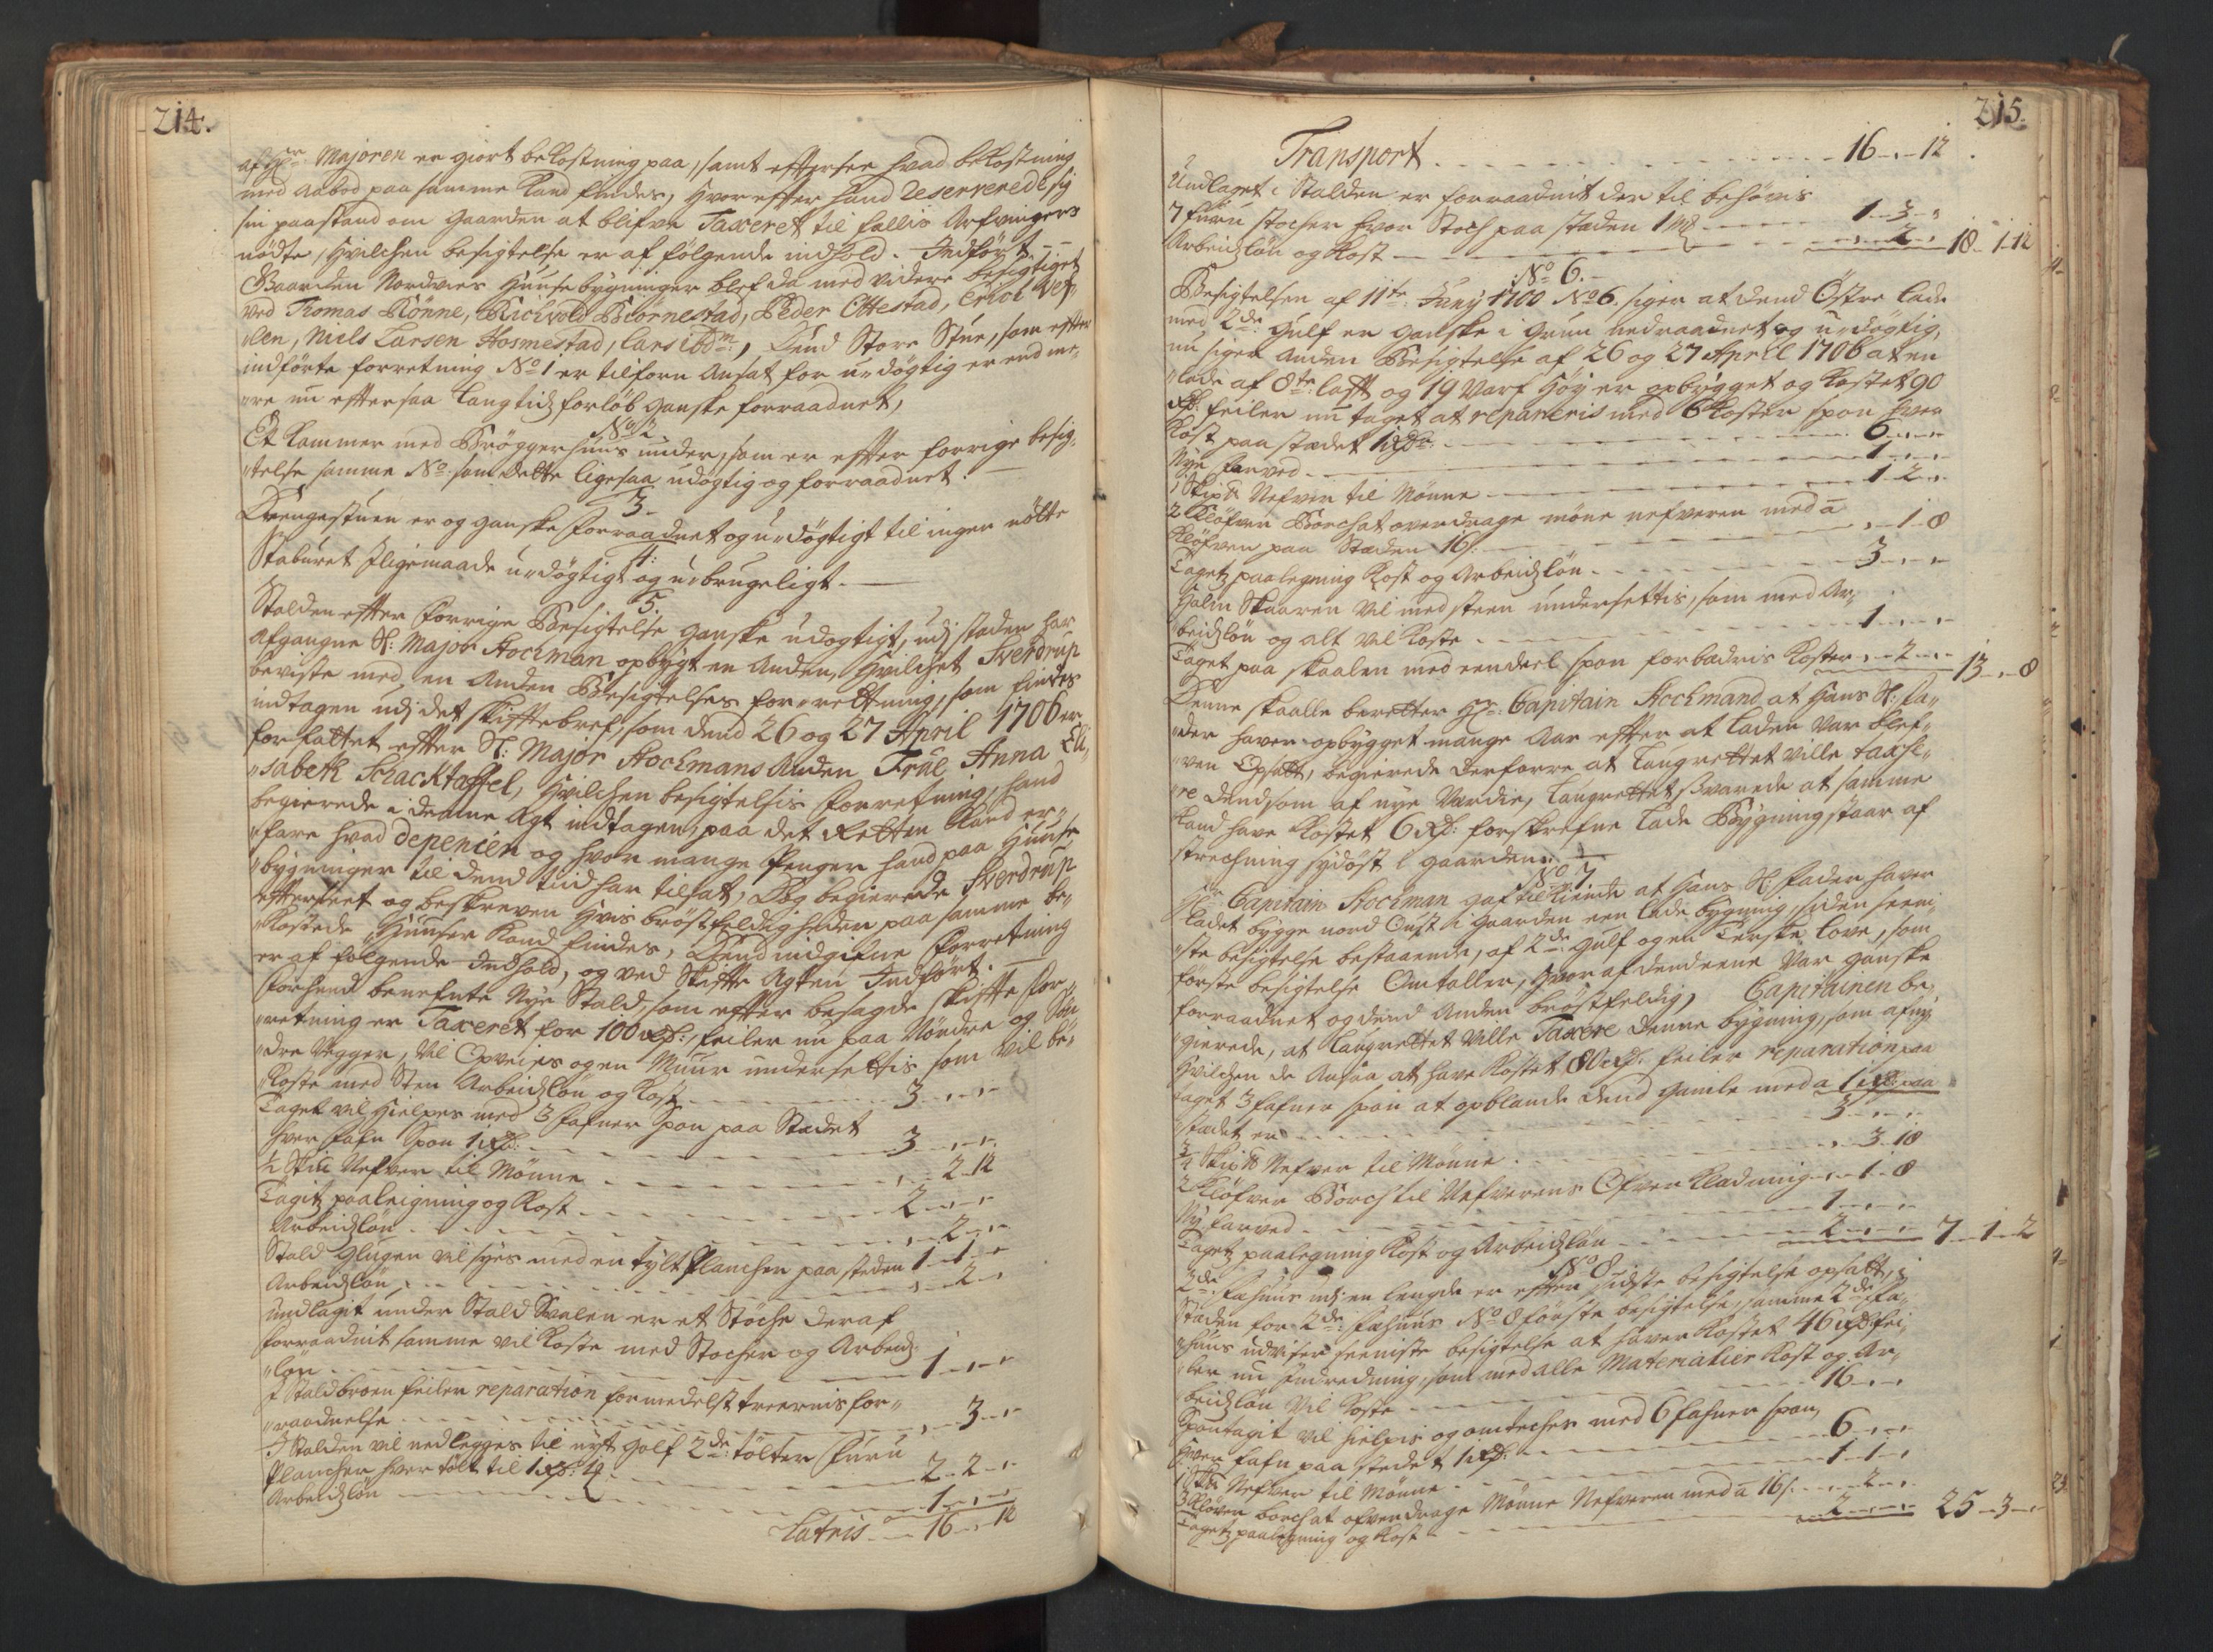 214.
af Hr Majoren er giort bekostning paa, samt efftersee hvad bekostning
med aabod paa samme kand findes, hvor effter hand reserverede sig
sin paastand om gaarden at blifve Taxeret til fallis Arfvingers
nödte, hvilchen besigtelse er af fölgende indhold. Indfört
Gaarden Nordvies huusebygninger blef da med videre besigtiget
ved Tomas Rönne, Richvold Biörnestad, Peder Ottestad, Erich
len, Niels Larsen Hosmestad, Lars ibdm, dend Store Stue, som effter
indförte forretning No 1 er tilforn ansat for udögtig er end me-
re nu effter saa lang tidz forlöb ganske forraadnet,
No 2
Et kammer med Bröggerhuus under, som er effter forrige besig-
telse samme No som dette ligesaa udögtig og forraadnet.
3
Drengestuen er og ganske forraadnet og u-dögtigt til ingen nötte
4.
Staburet iligemaade u-dögtigt og u-brugeligt.
5.
Stalden effter forrige Besigtelse ganske udögtigt, udj staden har
afgangne Sl: Major Stochman opbygt en anden, hvilchet Sverdrup
beviste med en anden Besigtelses forretning, som findes
indtagen udj det skifftebref, som dend 26 og 27 April 1706 er
forfattet effter Sl: Major Stochmans anden Frue Anna Eli-
sabeth Schacktaffel, hvilchen besigtelsis forretning, hand
begierede i denne Agt indtagen, paa det Retten kand er-
fare hvad depencen og hvor mange Penger hand paa huuse
bygninger til dend tiid har tilsat, dog begierede Sverdrup
effterseet og beskreven hvis bröstfeldigheder paa samme be-
kostede huuser kand findes, dend indgifne forretning
er af fölgende Indhold, og ved Skiffte Agten Indfört.
Forhend benefnte Nye Stald, som effter besagde skiffte for-
retning er Taxeret for 100 Rd:, feiler nu paa Nördre og Sön-
dre Vegger, vil Opveies og en Muur undersettis som vil be-
koste med Sten Arbeidzlön og Kost 3 - -
Taget vil hielpes med 3 fafner Spon paa Stedet
hver fafn Spon 1 Rd: 3 - -
½ Skip Nefver til Mönne - 2 12
Tagitz paaleigning og Kost 2 - -
Arbeidzlön - 2 -
Stald Glugen vil syes med en tylt Plancher paa steden 1 1 -
Arbeidzlön - 2 -
Undlagit under Stald Svalen er et Stöche deraf
forraadnit samme vil koste med Stocher og Arbeidz-
lön 1 - -
I Stald broen feiler reparation formedelst træernis for-
raadnelse - 3 -
I Stalden vil nedlegges til nyt golf 2de tölter furu
Plancher hver tölt til 1 Rd: 2 2 -
Arbeidzlön 1 - -
Latris 16 - 12
215.
Transport 16 - 12
Undlaget i Stalden er forraadnit der til behövis
7 furu stocher hver Stoch paa staden 1 m 8 1 3 -
Arbeidzlön og Kost - 2 - 18 1 12
No 6.
Besigtelsen af 11te Juny 1700 No 6. siger at dend Östre lade
med 2de gulf er ganske i grun nedraadnet og udögtig,
nu siger anden Besigtelse af 26 og 27 April 1706 at en
lade af 8te lafft og 19 Varf höy er opbygget og kostet 90
Rd: feiler nu taget at repareris med 6 koster spon hver
kost paa stedet 1 Rdr 6 - -
Nye farved 1 - -
1 Skip Nefver til Mönne 1 2 -
2 Klöfver Borch at overdrage möne nefveren med a
Klöfven paa Stæden 16 s: - 1 8
Tagetz paalegning Kost og Arbeidzlön 3 - -
Halm Skaaren vil med steen undersettis, som med Ar-
beidzlön og alt vil koste 1 - -
Taget paa skaalen med eendeel spon forbædris koster - 2 - 13 - 8
Denne skaalle beretter Hr: Capitain Stochmand at hans Sl: fa-
der haver opbygget mange Aar effter at laden var blef-
ven Opsatt, begierede derforre at laugrettet ville taxe-
re dend, som af nye Værdie, laugrettet svarede at samme
kand have kostet 6 Rd: forskrefne lade Bygning staar af
strechning sydöst i gaarden.
No 7
Hr Capitain Stochman gaf tilkiende at hans Sl: fader haver
ladet bygge nord Oust i gaarden een lade bygning, siden seeni-
ste besigtelse bestaaende, af 2de gulf og en Terske love, som
förste besigtelse Omtaller, hvor af dend eene var ganske
forraadnet og dend anden bröstfeldig, Capitainen be-
gierede, at laugrettet ville Taxere denne bygning, som af ny
hvilchen de ansaa at have kostet 80 Rd: feiler reparation paa
taget 3 fafner spon at opblande dend gamle med a 1 Rd: paa
stædet er 3 - -
¾ Skip Nefver til Mönne - 3 18
2 Klöfver Borch til Nefverens Ofver kladning - 1 8
Ny farved 1 - -
Tagetz paalegning Kost og Arbeidzlön 2 - - 7 1 2
No 8
2de fæhuus udj en lengde er effter sidste besigtelse opsatt, i
Stæden for 2de fæhuus No 8 förste besigtelse, samme 2de fæ-
huus udviser seeniste besigtelse at haver kostet 46 Rd: fei-
ler nu Indredning, som med alle Materialier Kost og Ar-
beidzlön vil koste 16 - -
Spontagit vil hielpis og omteches med 6 fafner spon,
hver fafn paa stedet 1 Rd: 6 - -
Nefver til Mönne 1 1 -
3 Klöver borch at ofverdrage Mönne Nefveren med a 16 s: - 2 -
Tagetz paalegning og Kost 2 - - 25 3 -